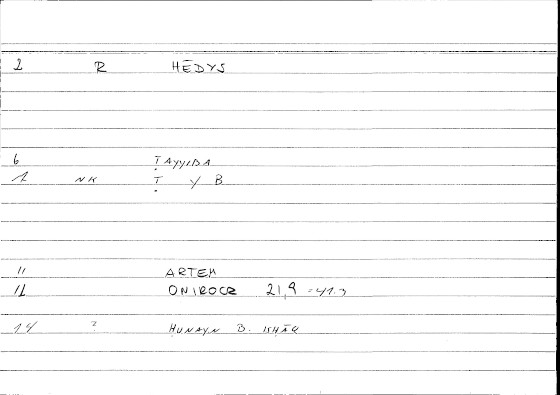 2 R HĒDYS
6 ṬAYYIBA
1 NK Ṭ Y B
11 ARTEM
12 ONIROCR 21,9 = 41.3
14 ? ḤUNAYN B. ISḤĀQ